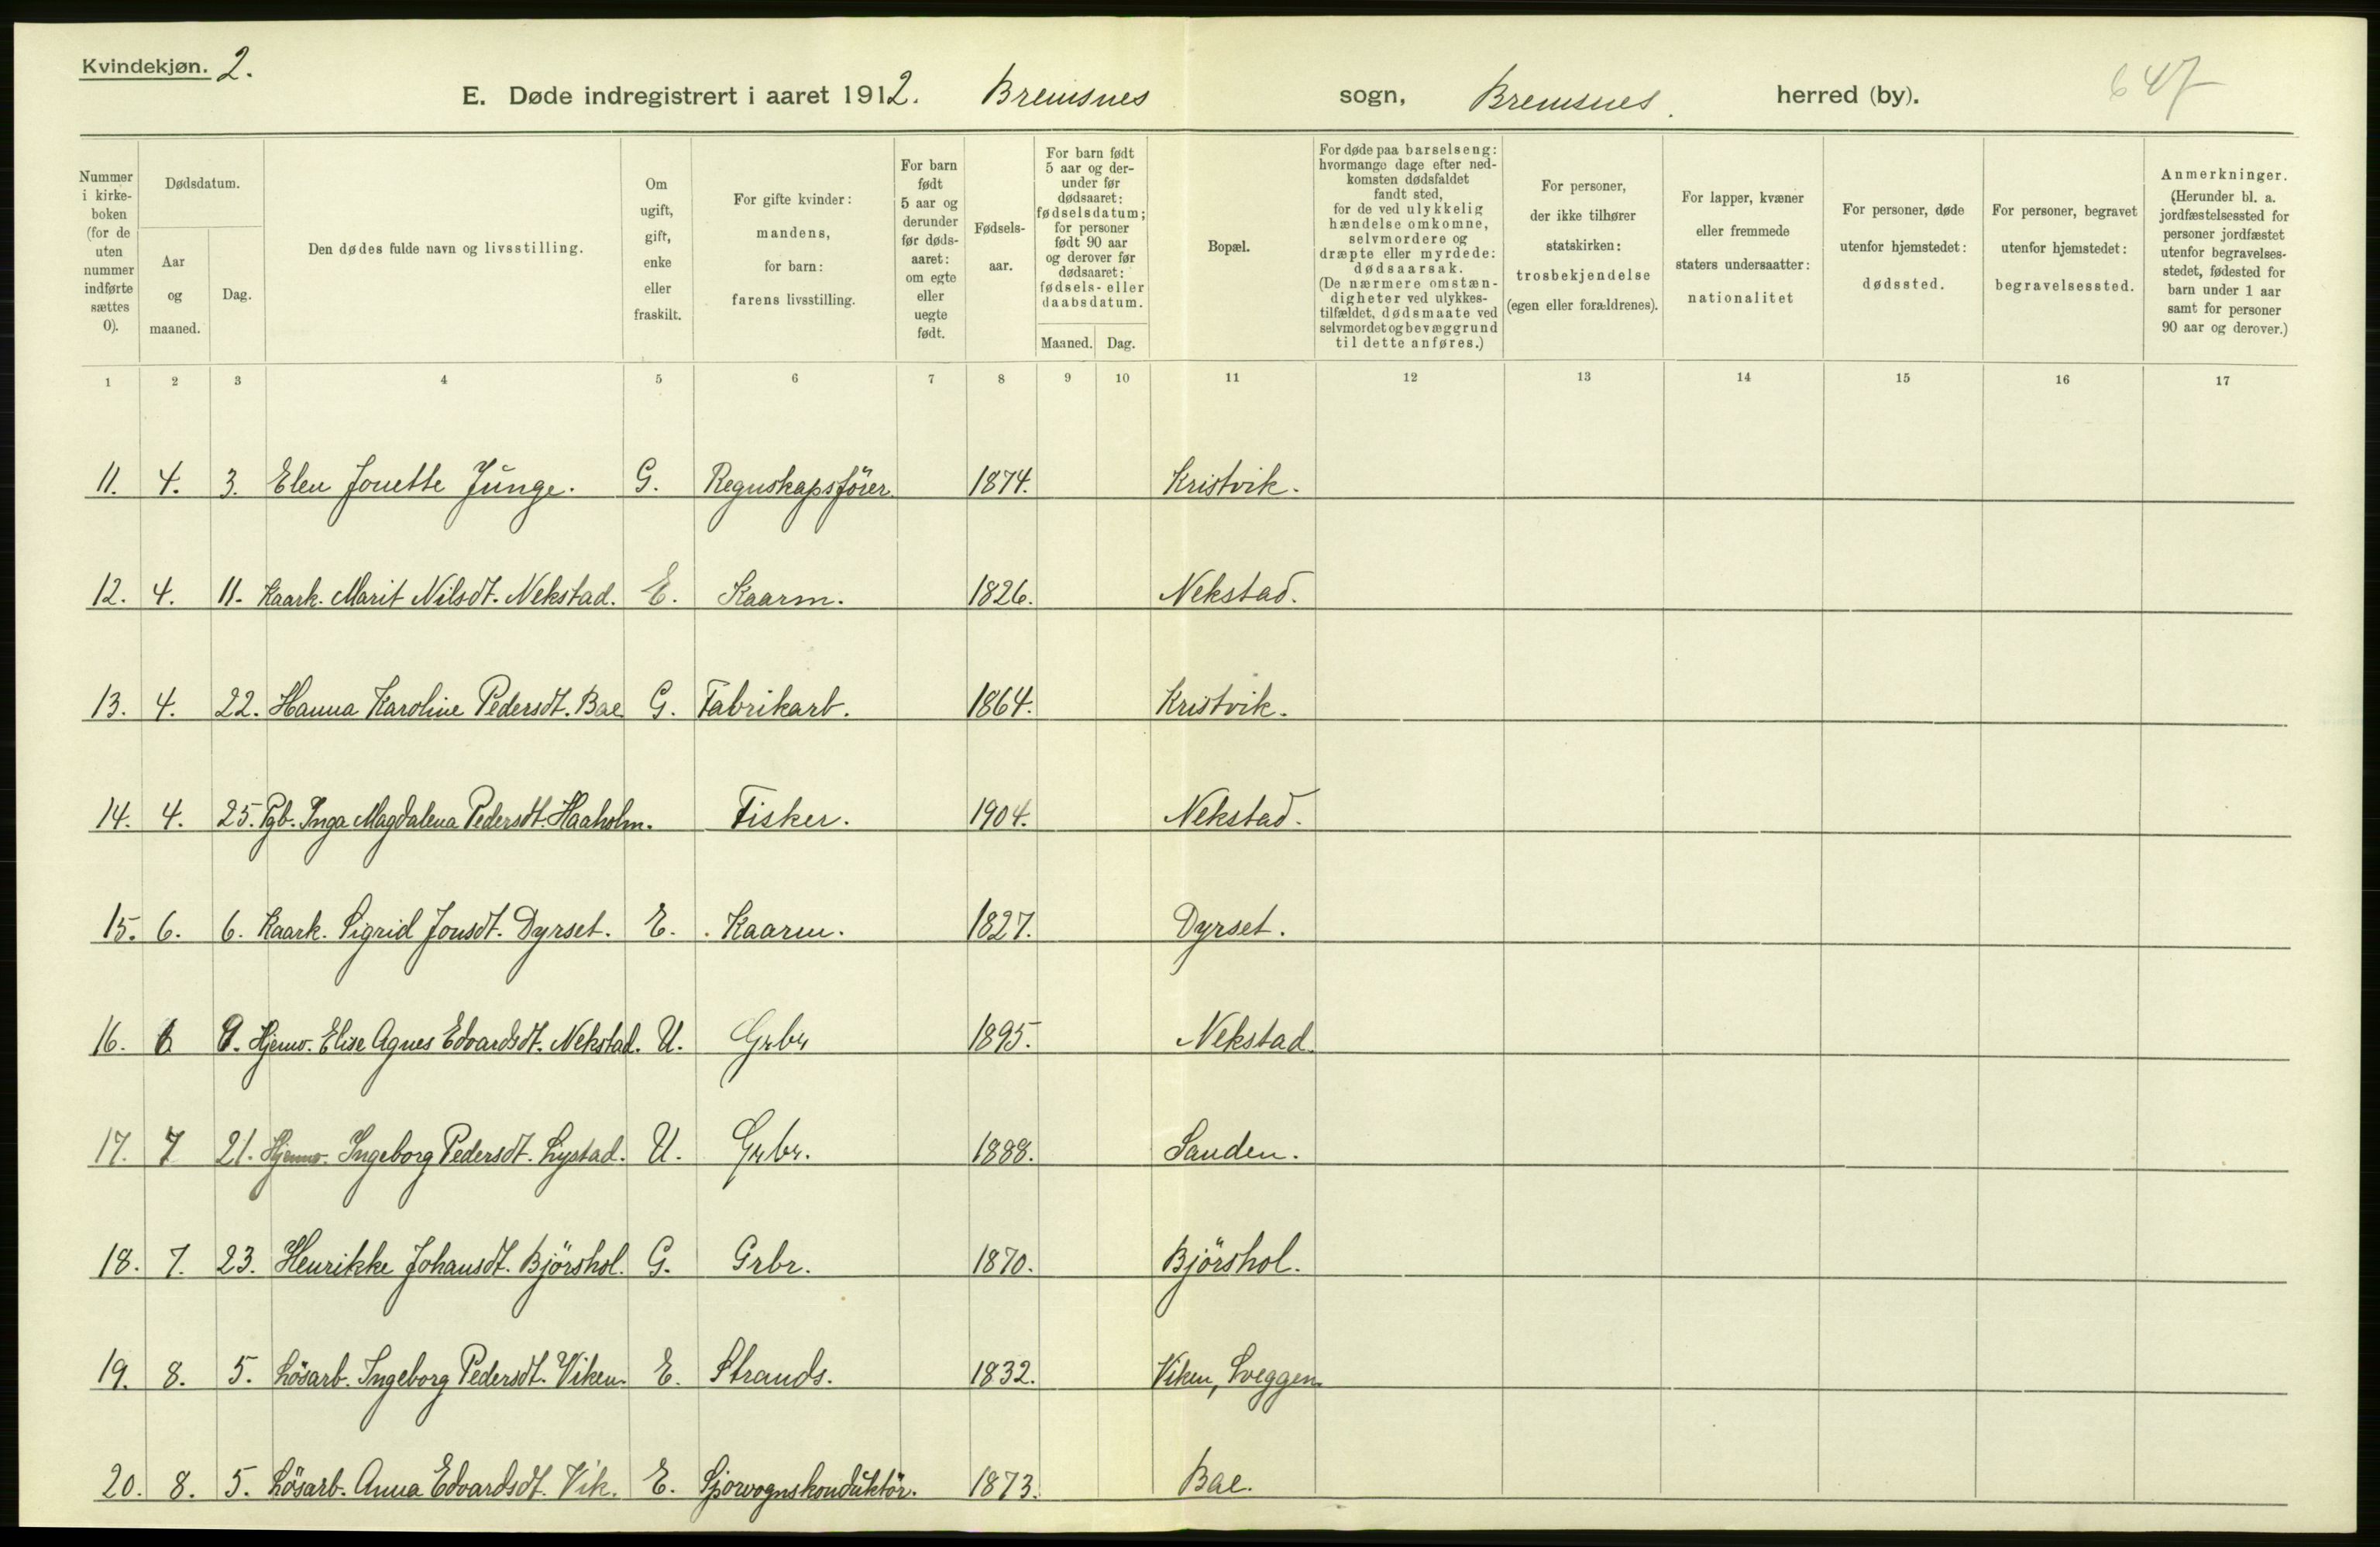 Kvindekjøn. 2.
E. Døde indregistrert i aaret 1912. Bremsnes sogn, Bremsnes. herred (by). 647
Nummer i kirke- boken (for de uten nummer indførte sættes 0).
Dødsdatum.
Aar og maaned.
Dag.
Den dødes fulde navn og livsstilling.
Om ugift, gift, enke eller fraskilt.
For gifte kvinder: mandens, for barn: farens livsstilling.
For barn født 5 aar og derunder før døds- aaret: om egte eller uegte født.
Fødsels- aar.
For barn født 5 aar og der- under før dødsaaret: fødselsdatum; for personer født 90 aar og derover før dødsaaret: fødsels- eller daabsdatum.
Maaned. Dag.
Bopæl.
For døde paa barselseng: hvormange dage efter ned- komsten dødsfaldet fandt sted, for de ved ulykkelig hændelse omkomne, selvmordere og dræpte eller myrdede: dødsaarsak. (De nærmere omstæn- digheter ved ulykkes- tilfældet, dødsmaate ved selvmordet og bevæggrund til dette anføres.)
For personer, der ikke tilhører statskirken: trosbekjendelse (egen eller forældrenes).
For lapper, kvæner eller fremmede staters undersaatter: nationalitet
For personer, døde utenfor hjemstedet: dødssted.
For personer, begravet utenfor hjemstedet: begravelsessted.
Anmerkninger. (Herunder bl. a. jordfæstelsessted for personer jordfæstet utenfor begravelses- stedet, fødested for barn under 1 aar samt for personer 90 aar og derover.)
1 2 3 4 5 6 7 8 9 10 11 12 13 14 15 16 17
11. 4. 3. Elen Jonette Junge. G. Regnskapsfører. 1874. Kristvik.
12. 4. 11. Kaark. Marit Nilsdt. Nekstad. E. Kaarm. 1826. Nekstad.
13. 4. 22. Hanna Karoline Pedersdt. Bae G. Fabrikarb. 1864. Kristvik.
14. 4. 25. Pgb. Inga Magdalena Pedersdt. Haaholm. Fisker. 1904. Nekstad.
15. 6. 6. Kaark. Sigrid Jonsdt. Dyrset. E. Kaarm. 1827. Dyrset.
16. 6 Hjemv. Elise Agnes Edvardsdt. Nekstad. U. Grbr 1895. Nekstad.
17. 7 21. Hjemv. Ingeborg Pedersdt. Lystad. U. Grbr. 1888. Sanden.
18. 7. 23. Henrikke Johansdt. Bjørshol. G. Grbr. 1870. Bjørshol.
19. 8. 5. Løsarb. Ingeborg Pedersdt. Viken. E. Strands. 1832. Viken, Sveggen.
20. 8. 5. Løsarb. Anna Edvardsdt. Vik. E. Sporvognskonduktør. 1873. Bae.